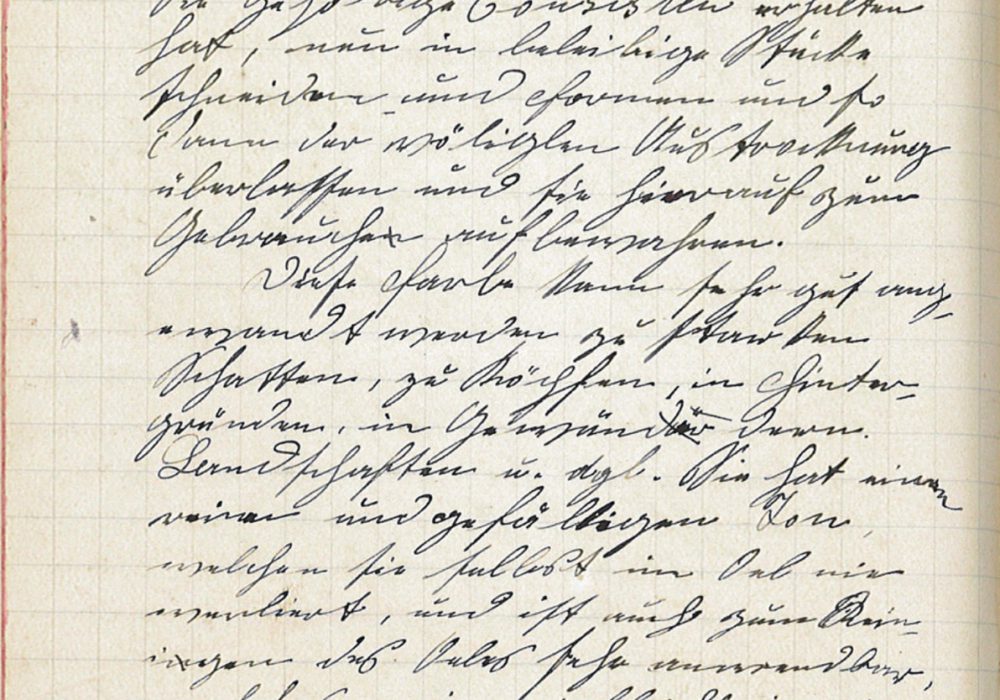 die gehörige Consisten erhalten
hat, nun in beleibige Stücke
schneiden und formen und so
dann der völiglen Austrocknung
überlassen und sie hierauf zum
Gebrauche aufbewahren.
Diese Farbe kann sehr gut ang,
ewandt werden zu starken
Schatten, zu in Hinter-
gründen, in Gewändern.
Landschaften u. dgl. Sie hat einen
reinen und gefälligen Ton,
welchen sie selbst im Oel nie
verliert, und ist auch zum Rein-
ingen des Oeles sehr anwendbar,